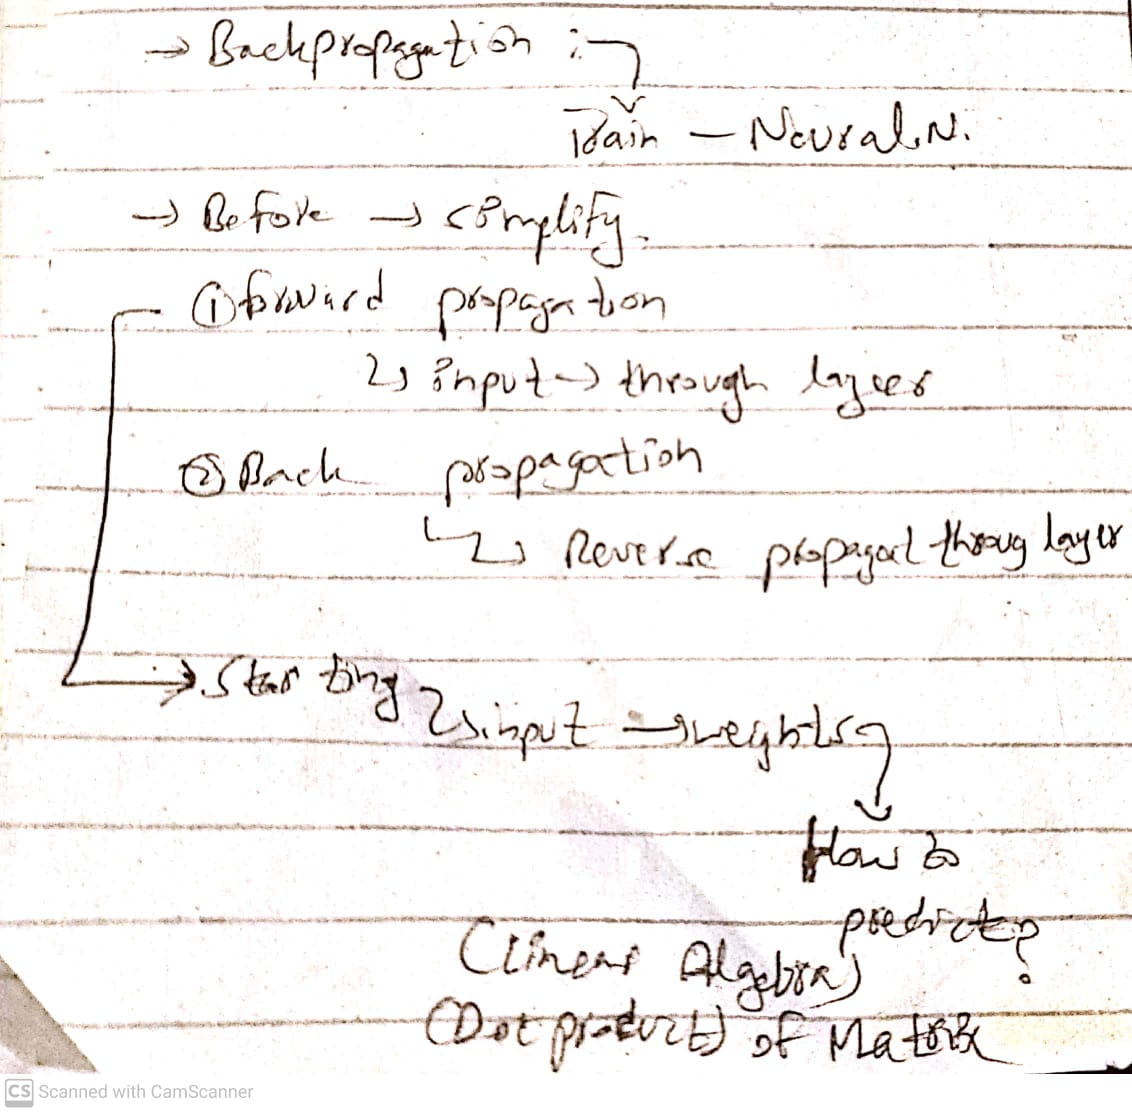 → Backpropagation :-
Train - Neural.N.
→ Before → simplify.
① forward propagation
↳ input → through layers
② Back propagation
↳ Reverse propagat throug layer
→ Starting
↳ input → weghts
How to
predict?
(Linear Algebra)
(Dot product) of Matrix
CS Scanned with CamScanner